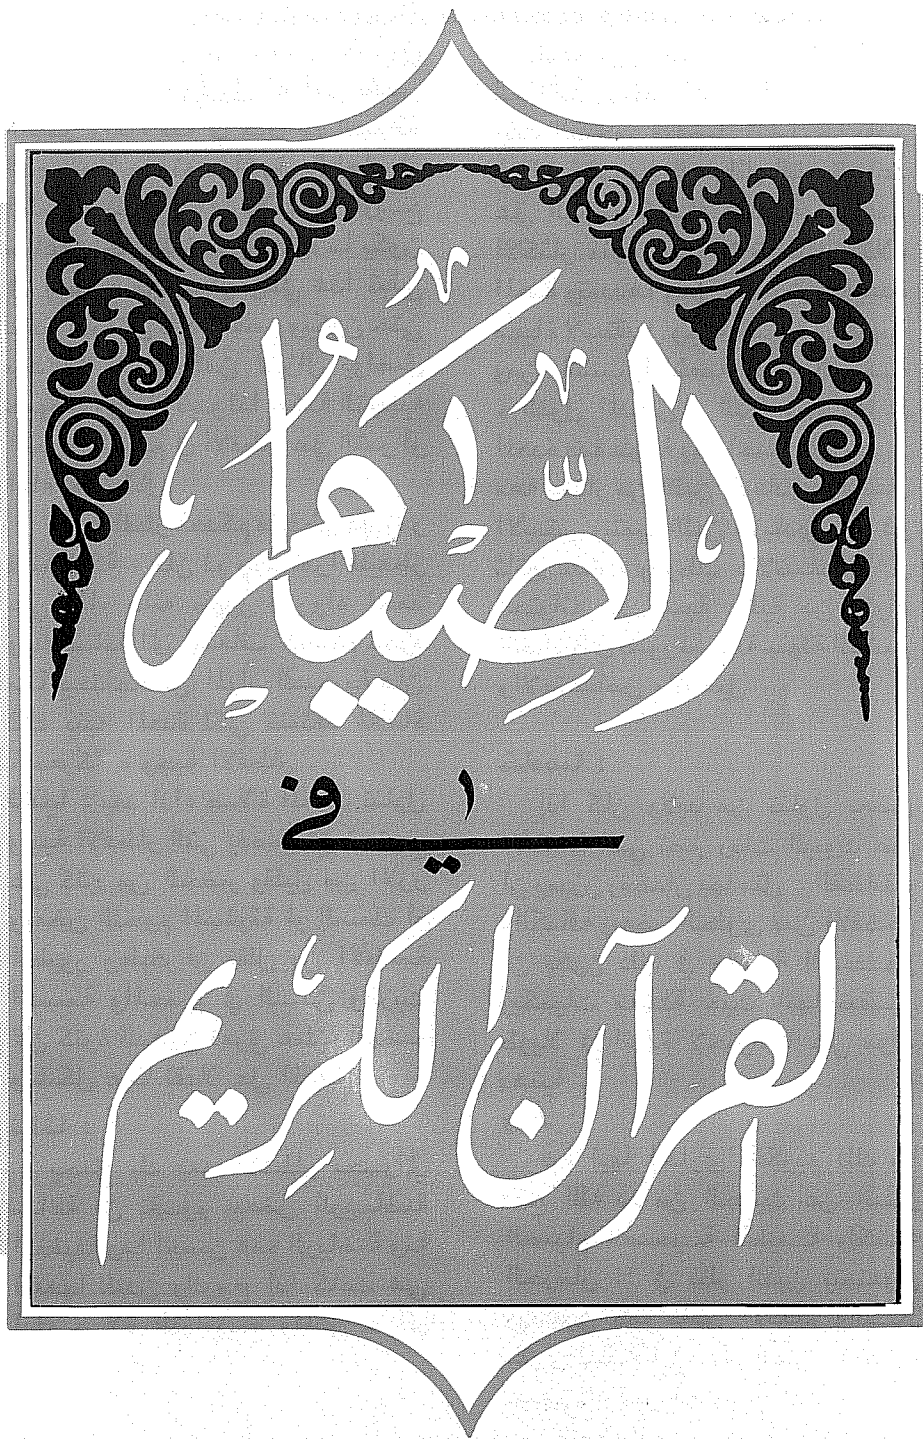 الصِّيَامُ
في
القرآن الكريم